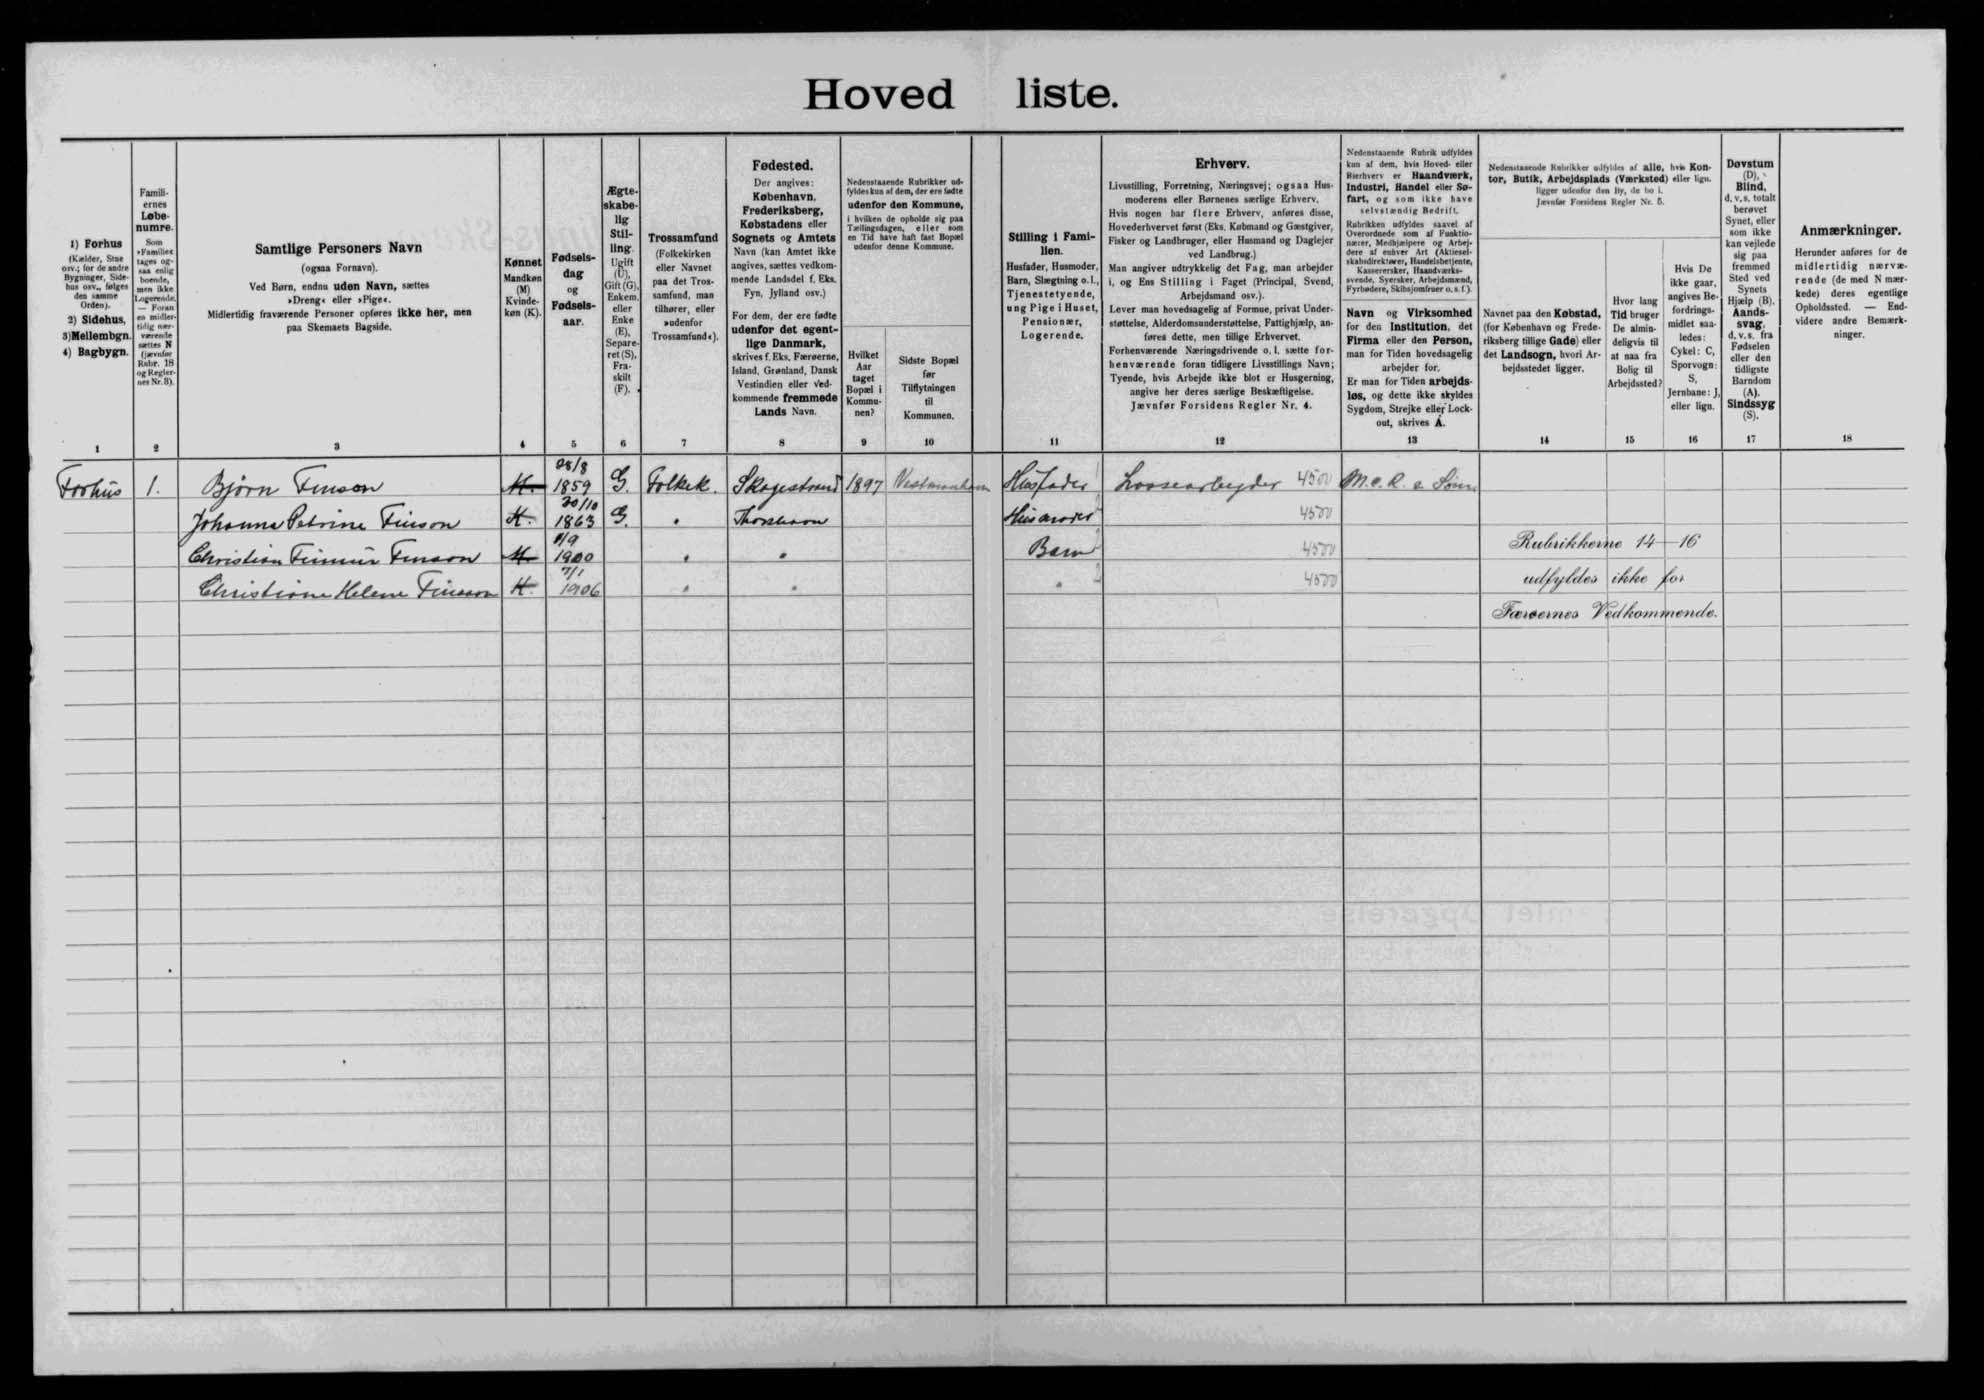 Hoved liste.
1) Forhus
(Kælder, Stue
osv.; for de andre
Bygninger, Side-
hus osv., følges
den samme
Orden).
2) Sidehus,
3) Mellembgn.
4) Bagbygn.
Famili-
ernes
Løbe-
numre.
Som
»Familie«
tages og-
saa enlig
boende,
men ikke
Logerende.
— Foran
en midler-
tidig nær-
værende
sættes N
(jævnfør
Rubr. 18
og Regler-
nes Nr. 8).
Samtlige Personers Navn
(ogsaa Fornavn).
Ved Børn, endnu uden Navn, sættes
»Dreng« eller »Pige«.
Midlertidig fraværende Personer opføres ikke her, men
paa Skemaets Bagside.
Kønnet
Mandkøn
(M)
Kvinde-
køn (K).
Fødsels-
dag
og
Fødsels-
aar.
Ægte-
skabe-
lig
Stil-
ling.
Ugift
(U),
Gift (G),
Enkem.
eller
Enke
(E),
Separe-
ret (S),
Fra-
skilt
(F).
Trossamfund
(Folkekirken
eller Navnet
paa det Tros-
samfund, man
tilhører, eller
»udenfor
Trossamfund«).
Fødested.
Der angives:
København,
Frederiksberg,
Købstadens eller
Sognets og Amtets
Navn (kan Amtet ikke
angives, sættes vedkom-
mende Landsdel f. Eks.
Fyn, Jylland osv.)
For dem, der ere fødte
udenfor det egent-
lige Danmark,
skrives f. Eks. Færøerne,
Island, Grønland, Dansk
Vestindien eller ved-
kommende fremmede
Lands Navn.
Nedenstaaende Rubrikker ud-
fyldes kun af dem, der ere fødte
udenfor den Kommune,
i hvilken de opholde sig paa
Tællingsdagen, eller som
en Tid have haft fast Bopæl
udenfor denne Kommune.
Hvilket
Aar
taget
Bopæl i
Kommu-
nen?
Sidste Bopæl
før
Tilflytningen
til
Kommunen.
Stilling i Fami-
lien.
Husfader, Husmoder,
Barn, Slægtning o. l.,
Tjenestetyende,
ung Pige i Huset,
Pensionær,
Logerende.
Erhverv.
Livsstilling, Forretning, Næringsvej; ogsaa Hus-
moderens eller Børnenes særlige Erhverv.
Hvis nogen har flere Erhverv, anføres disse,
Hovederhvervet først (Eks. Købmand og Gæstgiver,
Fisker og Landbruger, eller Husmand og Daglejer
ved Landbrug.)
Man angiver udtrykkelig det Fag, man arbejder
i, og Ens Stilling i Faget (Principal, Svend,
Arbejdsmand osv.).
Lever man hovedsagelig af Formue, privat Under-
støttelse, Alderdomsunderstøttelse, Fattighjælp, an-
føres dette, men tillige Erhvervet.
Forhenværende Næringsdrivende o. l. sætte for-
henværende foran tidligere Livsstillings Navn;
Tyende, hvis Arbejde ikke blot er Husgerning,
angive her deres særlige Beskæftigelse.
Jævnfør Forsidens Regler Nr. 4.
Nedenstaaende Rubrik udfyldes
kun af dem, hvis Hoved- eller
Bierhverv er Haandværk,
Industri, Handel eller Sø-
fart, og som ikke have
selvstændig Bedrift.
Rubrikken udfyldes saavel af
Overordnede som af Funktio-
nærer, Medhjælpere og Arbej-
dere af enhver Art (Aktiesel-
skabsdirektører, Handelsbetjente,
Kasserersker, Haandværks-
svende, Syersker, Arbejdsmænd,
Fyrbødere, Skibsjomfruer o. s. f.).
Navn og Virksomhed
for den Institution, det
Firma eller den Person,
man for Tiden hovedsagelig
arbejder for.
Er man for Tiden arbejds-
løs, og dette ikke skyldes
Sygdom, Strejke eller Lock-
out, skrives A.
Nedenstaaende Rubrikker udfyldes af alle, hvis Kon-
tor, Butik, Arbejdsplads (Værksted) eller lign.
ligger udenfor den By, de bo i.
Jævnfør Forsidens Regler Nr. 5.
Navnet paa den Købstad,
(for København og Frede-
riksberg tillige Gade) eller
det Landsogn, hvori Ar-
bejdsstedet ligger.
Hvor lang
Tid bruger
De almin-
deligvis til
at naa fra
Bolig til
Arbejdssted?
Hvis De
ikke gaar,
angives Be-
fordrings-
midlet saa-
ledes:
Cykel: C,
Sporvogn:
S,
Jernbane: J,
eller lign.
Døvstum
(D),
Blind,
d. v. s. totalt
berøvet
Synet, eller
som ikke
kan vejlede
sig paa
fremmed
Sted ved
Synets
Hjælp (B).
Aands-
svag,
d. v. s. fra
Fødselen
eller den
tidligste
Barndom
(A).
Sindssyg
(S).
Anmærkninger.
Herunder anføres for de
midlertidig nærvæ-
rende (de med N mær-
kede) deres egentlige
Opholdssted. — End-
videre andre Bemærk-
ninger.
1 2 3 4 5 6 7 8 9 10 11 12 13 14 15 16 17 18
Forhus 1. Bjørn Finson M. 28/8 1859 G. Folkek. Skagestrand 1897 Vestmanhavn Husfader Loosearbejder 4500
Johanna Petrine Finson K. 30/10 1863 G. " Thorshavn Husmoder 4500
Christian Finnur Finson M. 1900 " " Barn 4500
Christiane Helene Finsson K. 7/1 1906 " " " 4500
Rubrikkerne 14—16
udfyldes ikke for
Færøernes Vedkommende.